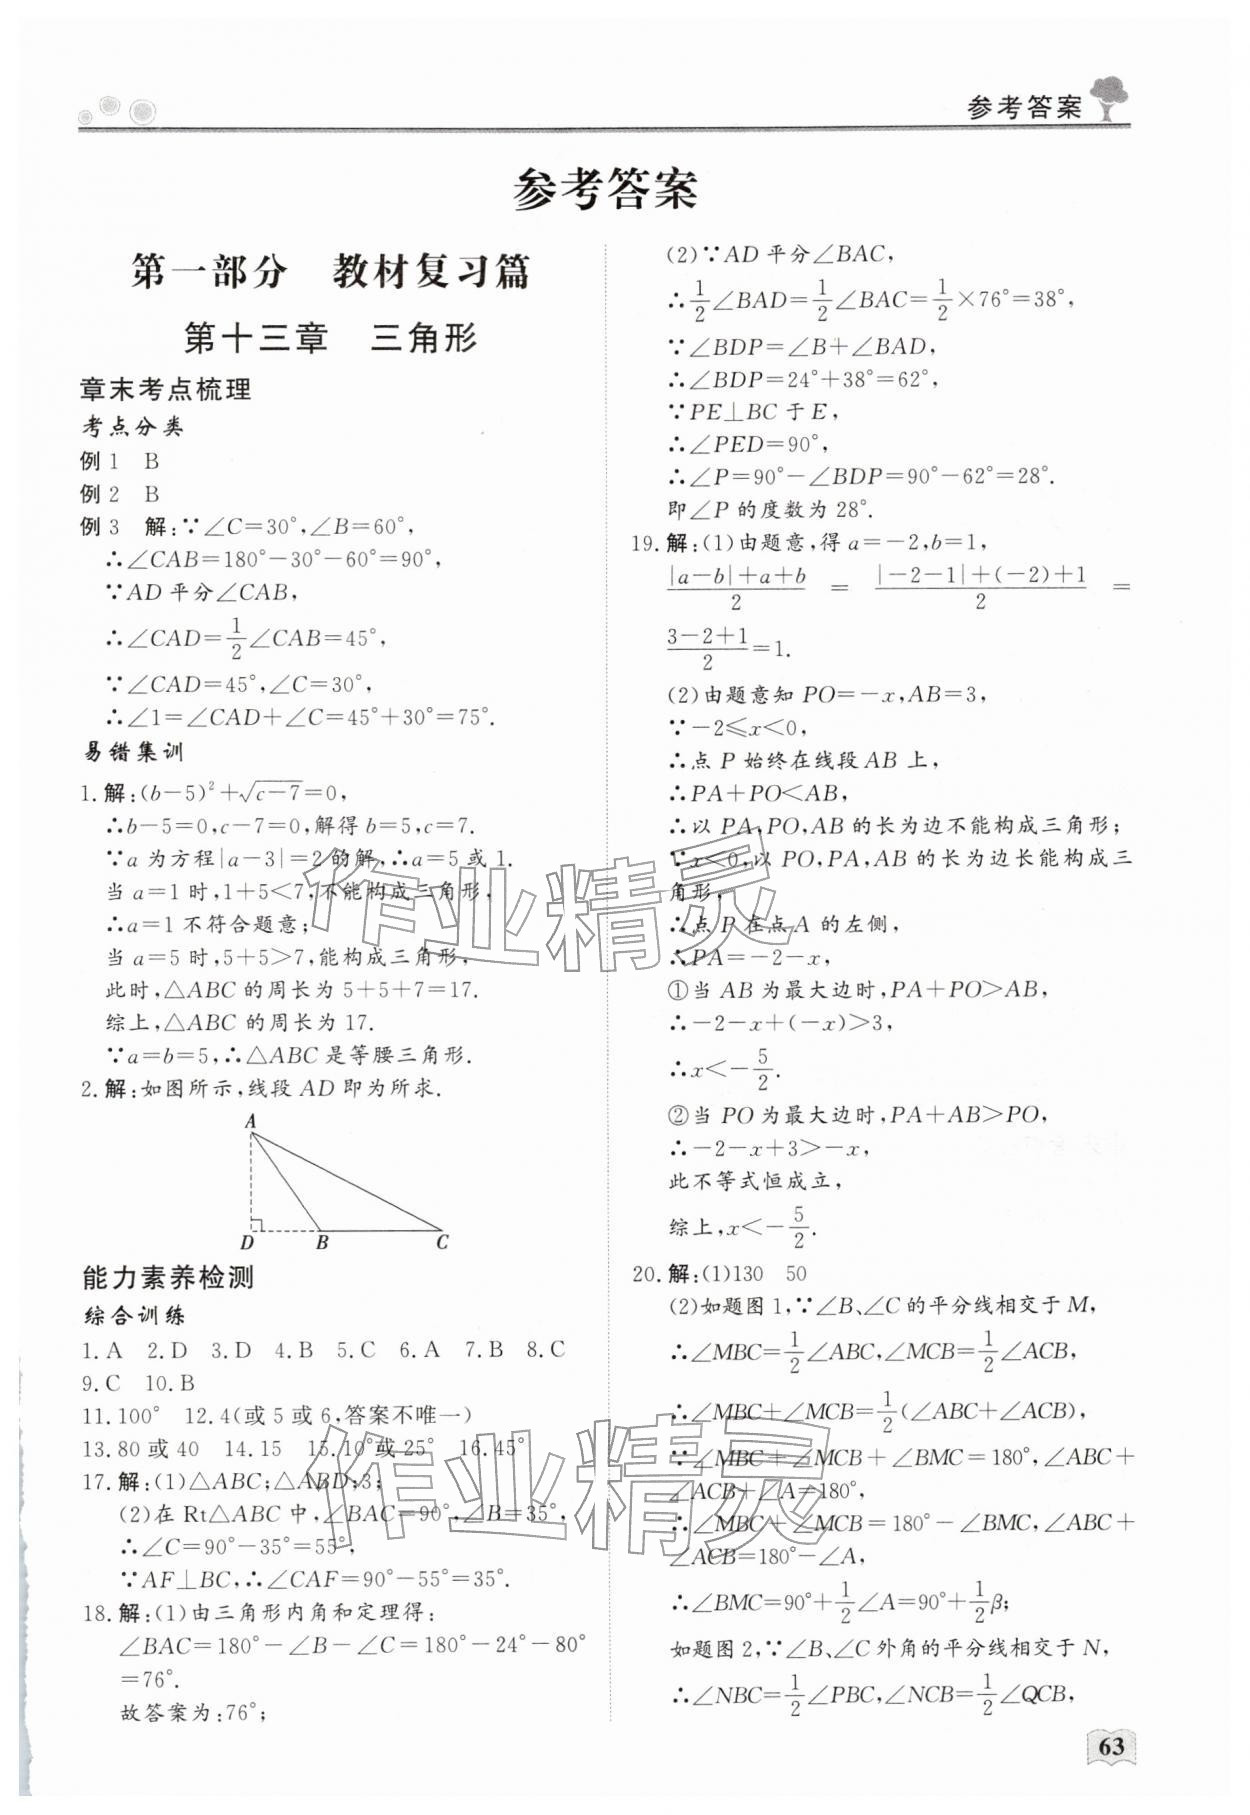 参考答案
参考答案
第一部分　教材复习篇
第十三章　三角形
章末考点梳理
考点分类
例1　B
例2　B
例3　解:∵∠C=30°,∠B=60°,
∴∠CAB=180°-30°-60°=90°,
∵AD平分∠CAB,
∴∠CAD=1/2∠CAB=45°,
∵∠CAD=45°,∠C=30°,
∴∠1=∠CAD+∠C=45°+30°=75°.
易错集训
1.解:(b-5)²+√(c-7)=0,
∴b-5=0,c-7=0,解得b=5,c=7.
∵a为方程|a-3|=2的解,∴a=5或1.
当a=1时,1+5<7,不能构成三角形,
∴a=1不符合题意;
当a=5时,5+5>7,能构成三角形,
此时,△ABC的周长为5+5+7=17.
综上,△ABC的周长为17.
∵a=b=5,∴△ABC是等腰三角形.
2.解:如图所示,线段AD即为所求.
A
D　B　C
能力素养检测
综合训练
1.A　2.D　3.D　4.B　5.C　6.A　7.B　8.C
9.C　10.B
11.100°　12.4(或5或6,答案不唯一)
13.80或40　14.15　15.10°或25°　16.45°
17.解:(1)△ABC;△ABD;3;
(2)在Rt△ABC中,∠BAC=90°,∠B=35°,
∴∠C=90°-35°=55°,
∵AF⊥BC,∴∠CAF=90°-55°=35°.
18.解:(1)由三角形内角和定理得:
∠BAC=180°-∠B-∠C=180°-24°-80°
=76°.
故答案为:76°;
(2)∵AD平分∠BAC,
∴1/2∠BAD=1/2∠BAC=1/2×76°=38°,
∵∠BDP=∠B+∠BAD,
∴∠BDP=24°+38°=62°,
∵PE⊥BC于E,
∴∠PED=90°,
∴∠P=90°-∠BDP=90°-62°=28°.
即∠P的度数为28°.
19.解:(1)由题意,得a=-2,b=1,
(|a-b|+a+b)/2 = (|-2-1|+(-2)+1)/2 =
(3-2+1)/2=1.
(2)由题意知PO=-x,AB=3,
∵-2≤x<0,
∴点P始终在线段AB上,
∴PA+PO<AB,
∴以PA,PO,AB的长为边不能构成三角形;
∵x<0,以PO,PA,AB的长为边长能构成三
角形,
∴点P在点A的左侧,
∴PA=-2-x,
①当AB为最大边时,PA+PO>AB,
∴-2-x+(-x)>3,
∴x<-5/2.
②当PO为最大边时,PA+AB>PO,
∴-2-x+3>-x,
此不等式恒成立,
综上,x<-5/2.
20.解:(1)130　50
(2)如题图1,∵∠B、∠C的平分线相交于M,
∴∠MBC=1/2∠ABC,∠MCB=1/2∠ACB,
∴∠MBC+∠MCB=1/2(∠ABC+∠ACB),
∵∠MBC+∠MCB+∠BMC=180°,∠ABC+
∠ACB+∠A=180°,
∴∠MBC+∠MCB=180°-∠BMC,∠ABC+
∠ACB=180°-∠A,
∴∠BMC=90°+1/2∠A=90°+1/2β;
如题图2,∵∠B、∠C外角的平分线相交于N,
∴∠NBC=1/2∠PBC,∠NCB=1/2∠QCB,
63
作业精灵
作业精灵